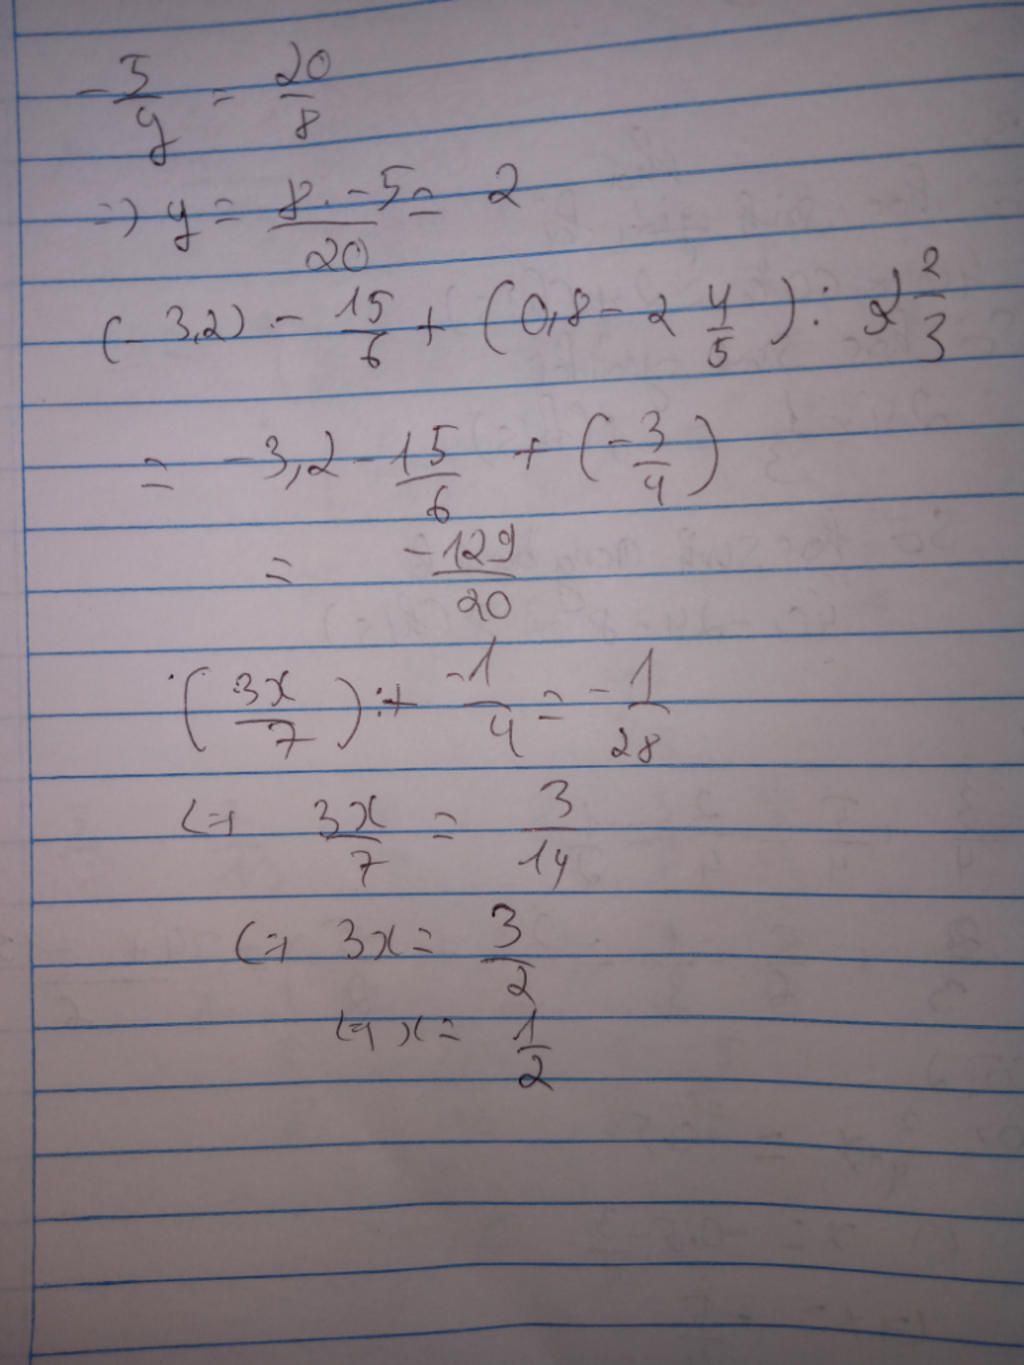 -5/y = 20/8
=> y = 8.-5/20 = 2
(-3,2) . - 15/6 + (0,8 - 2 4/5) : 2 2/3
= -3,2 - 15/6 + (-3/4)
= -129/20
(3x/7) :+ -1/4 = -1/28
<=> 3x/7 = 3/14
<=> 3x = 3/2
<=> x = 1/2